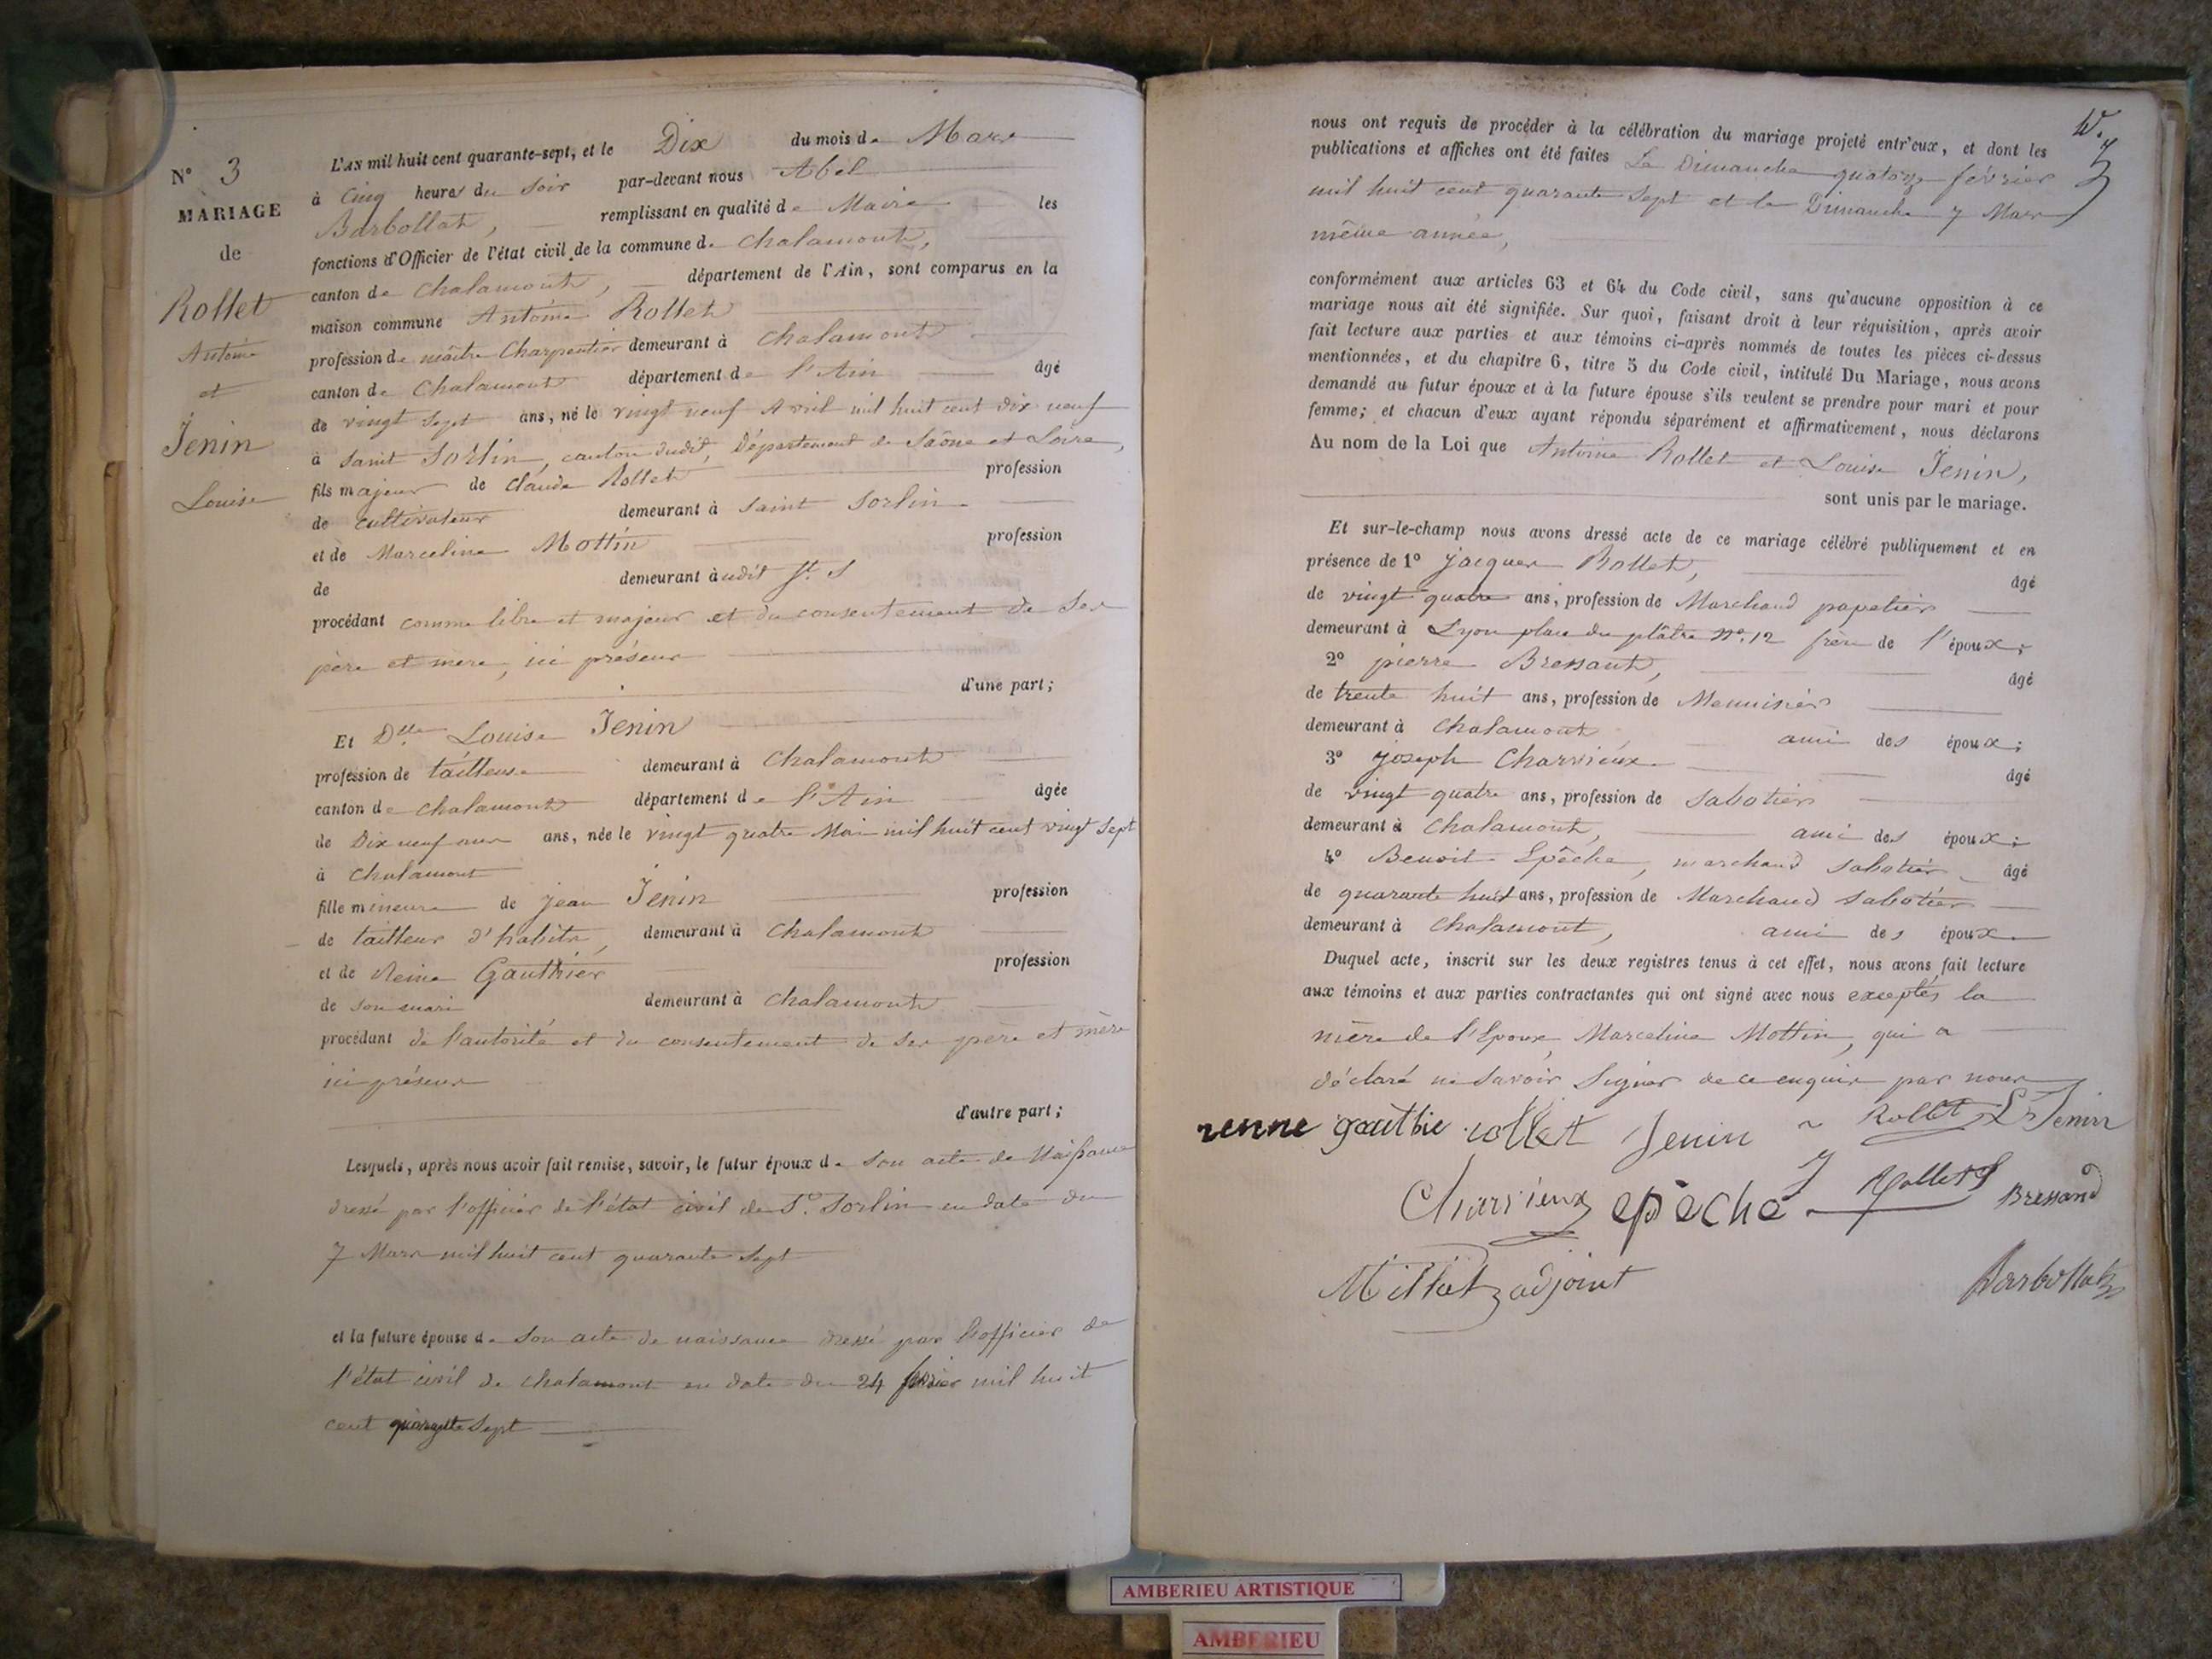 N° 3
MARIAGE
de
Rollet
Antoine
et
Jenin
Louise
L'AN mil huit cent quarante-sept, et le Dix du mois de Mars
à Cinq heures du Soir par-devant nous Abel
Barbollat, remplissant en qualité de Maire les
fonctions d'Officier de l'état civil de la commune de Chalamont,
canton de Chalamont, département de l'Ain, sont comparus en la
maison commune Antoine Rollet
profession de maître Charpentier demeurant à Chalamont
canton de Chalamont département de l'Ain âgé
de vingt sept ans, né le vingt neuf Avril mil huit cent dix neuf
à Saint Sorlin, canton dudit, Département de Saône et Loire,
fils majeur de Claude Rollet profession
de cultivateur demeurant à Saint Sorlin
et de Marceline Mottin profession
de demeurant audit St. S
procédant comme libre et majeur et du consentement de ses
père et mère, ici présens
d'une part;
Et Dlle Louise Jenin
profession de tailleuse demeurant à Chalamont
canton de Chalamont département de l'Ain âgée
de Dix neuf ans ans, née le vingt quatre Mai mil huit cent vingt sept
à Chalamont
fille mineure de Jean Jenin profession
de tailleur d'habits, demeurant à Chalamont
et de Reine Gauthier profession
de son mari demeurant à Chalamont
procédant de l'autorité et du consentement de ses père et mère
ici présens
d'autre part;
Lesquels, après nous avoir fait remise, savoir, le futur époux de son acte de Naissance
dressé par l'officier de l'état civil de St. Sorlin en date du
7 Mars mil huit cent quarante sept
et la future épouse de son acte de naissance dressé par l'officier de
l'état civil de Chalamont en date du 24 février mil huit
cent quarante sept
nous ont requis de procéder à la célébration du mariage projeté entr'eux, et dont les
publications et affiches ont été faites Le Dimanche quatorze février
mil huit cent quarante sept et le Dimanche 7 Mars
même année,
conformément aux articles 63 et 64 du Code civil, sans qu'aucune opposition à ce
mariage nous ait été signifiée. Sur quoi, faisant droit à leur réquisition, après avoir
fait lecture aux parties et aux témoins ci-après nommés de toutes les pièces ci-dessus
mentionnées, et du chapitre 6, titre 5 du Code civil, intitulé Du Mariage, nous avons
demandé au futur époux et à la future épouse s'ils veulent se prendre pour mari et pour
femme; et chacun d'eux ayant répondu séparément et affirmativement, nous déclarons
Au nom de la Loi que Antoine Rollet et Louise Jenin,
sont unis par le mariage.
Et sur-le-champ nous avons dressé acte de ce mariage célébré publiquement et en
présence de 1° Jacques Rollet, âgé
de vingt quatre ans, profession de Marchand papetier
demeurant à Lyon place du plâtre N°. 12 frère de l'époux;
2° pierre Bressant, âgé
de trente huit ans, profession de Menuisier
demeurant à Chalamont ami des époux;
3° joseph Charvieux âgé
de vingt quatre ans, profession de Sabotier
demeurant à Chalamont, ami des époux;
4° Benoit Epêche, marchand sabotier âgé
de quarante huit ans, profession de Marchand sabotier
demeurant à Chalamont, ami des époux
Duquel acte, inscrit sur les deux registres tenus à cet effet, nous avons fait lecture
aux témoins et aux parties contractantes qui ont signé avec nous exceptés la
mère de l'Epoux Marceline Mottin, qui a
déclaré ne savoir signer de ce enquis par nous
renne gautbie rollet Jenin Rollet Le Jenin
Charvieux epèche J Rollet Bressand
Millet adjoint Barbollat
AMBERIEU ARTISTIQUE
AMBERIEU